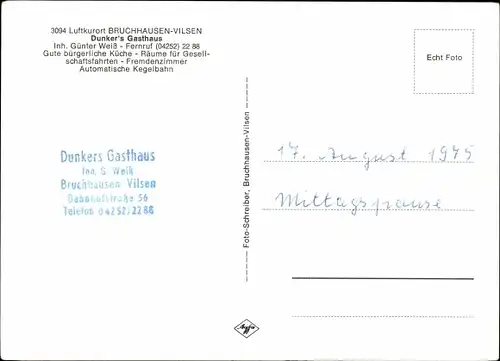 3094 Luftkurort BRUCHHAUSEN-VILSEN
Dunker's Gasthaus
Inh. Günter Weiß - Fernruf (04252) 22 88
Gute bürgerliche Küche - Räume für Gesell-
schaftsfahrten - Fremdenzimmer
Automatische Kegelbahn
Echt Foto
Dunkers Gasthaus
Inh. G. Weiß
Bruchhausen Vilsen
Bahnhofstraße 56
Telefon 04252/2288
Foto-Schreiber, Bruchhausen-Vilsen
17. August 1975
Mittagspause
Agfa